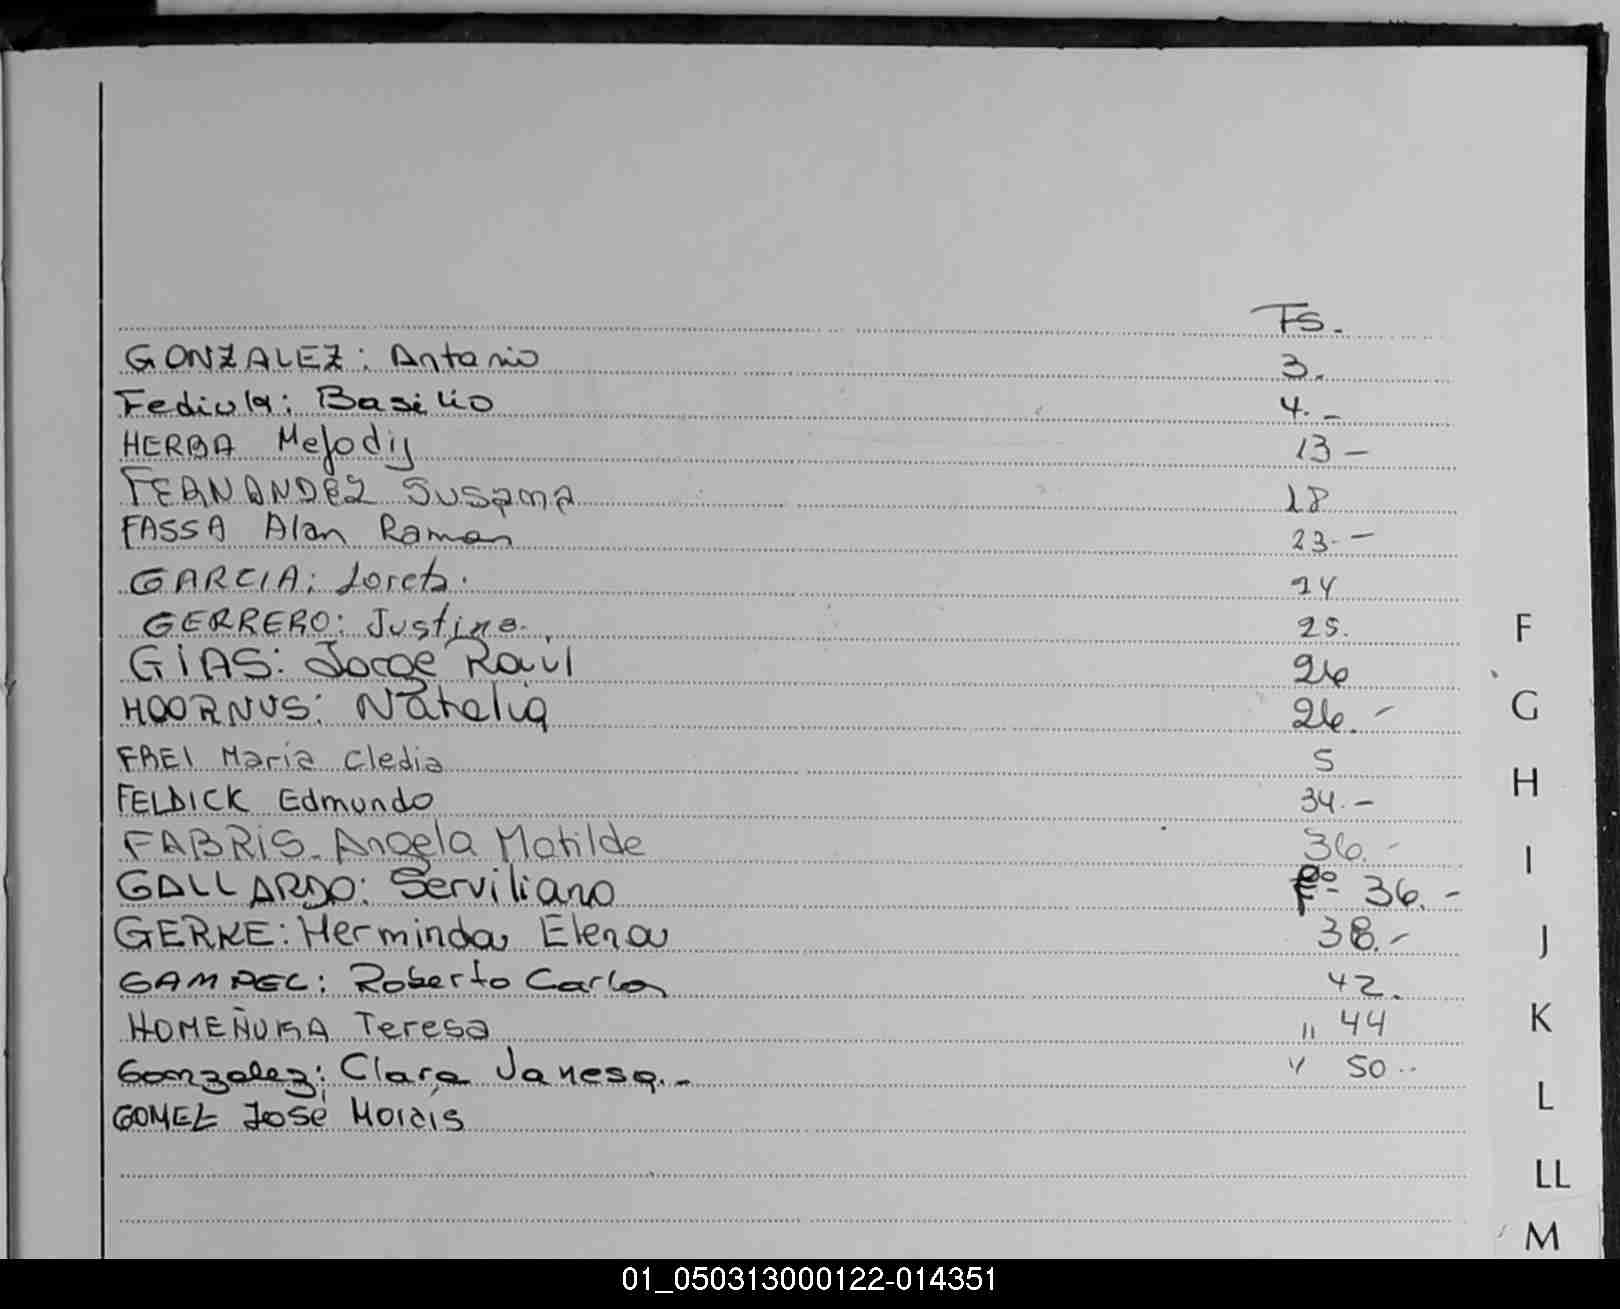 Fs.
GONZALEZ: Antonio 3.
Fediuk: Basilio 4.-
HERBA Melodiy 13 -
FERNANDEZ Susana 18
FASSA Alan Ramon 23.-
GARCIA: Loreto. 24
GERRERO: Justino. 25.
GIAS: Jorge Raúl 26
HOORNUS: Natalia 26.-
FREI María Cledia 5
FELDICK Edmundo 34.-
FABRIS. Angela Matilde 36.-
GALLARDO: Serviliano Fº 36.-
GERKE: Herminda Elena 38.-
Roberto Carlos 42.
Teresa " 44
Gonzalez: Clara Vanesa.- " 50..
GOMEZ José Moisés
F
G
H
I
J
K
L
LL
M
01_050313000122-014351